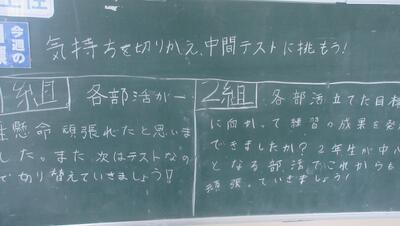 今週の
気持ちを切りかえ、中間テストに挑もう!
1組
各部活が一
生懸命頑張れたと思いま
した。また次はテストなの
で切り替えていきましょう!!
2組
各部活立てた目標
に向かって練習の成果を発
できましたか?2年生が中心
となる部活でこれからも
頑張っていきましょう!